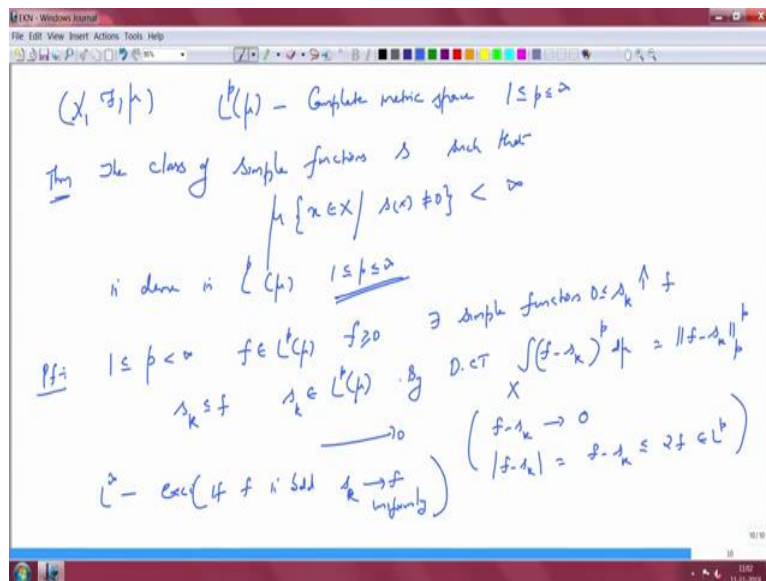 EKN - Windows Journal
File Edit View Insert Actions Tools Help
(X, F, μ) L^p(μ) – Complete metric space 1 ≤ p ≤ ∞
Thm The class of simple functions s such that
μ{x ∈ X | s(x) ≠ 0} < ∞
is dense in L^p(μ) 1 ≤ p ≤ ∞
Pf:- 1 ≤ p < ∞ f ∈ L^p(μ) f ≥ 0 ∃ simple functions 0 ≤ s_k ↑ f
s_k ≤ f s_k ∈ L^p(μ). By D.CT ∫_X (f-s_k)^p dμ = ||f-s_k||_p^p
→ 0
(f-s_k → 0
|f-s_k| = f-s_k ≤ 2f ∈ L^p)
L^∞ – exc (If f is bdd s_k → f uniformly)
10/10
10